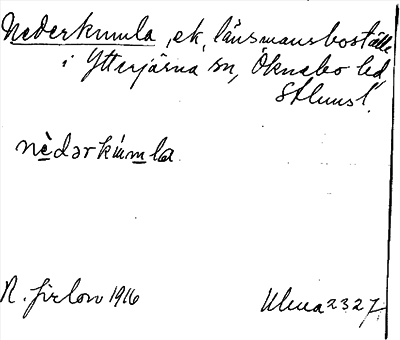 Nederkumla, ek, länsmansboställe
i Ytterjärna sn, Öknebo hd,
Sthmsl.
nèdərkùmla
R. 1916
2327